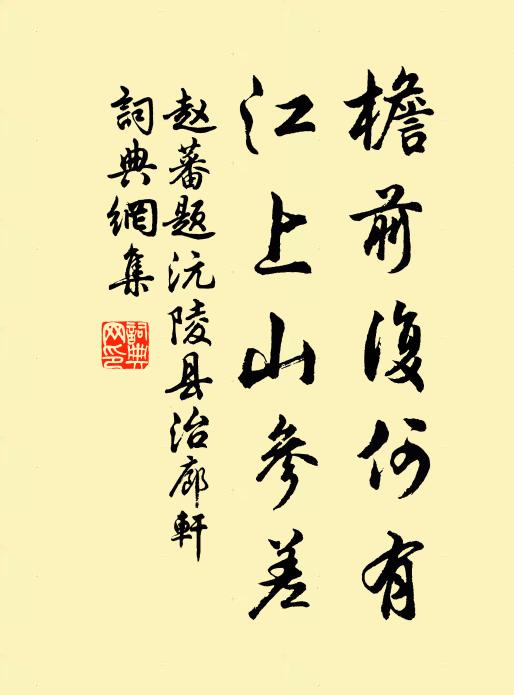 檐前復何有
江上山參差
赵蕃题沅陵县治廊軒
詞典網集
詞典
网印